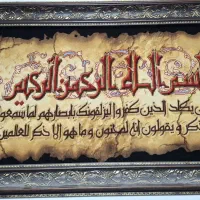 بسم الله الرحمن الرحيم
و ان يكاد الذين كفروا ليزلقونك بابصارهم لما سمعوا
الذكر و يقولون انه لمجنون و ما هو الا ذكر للعالمين